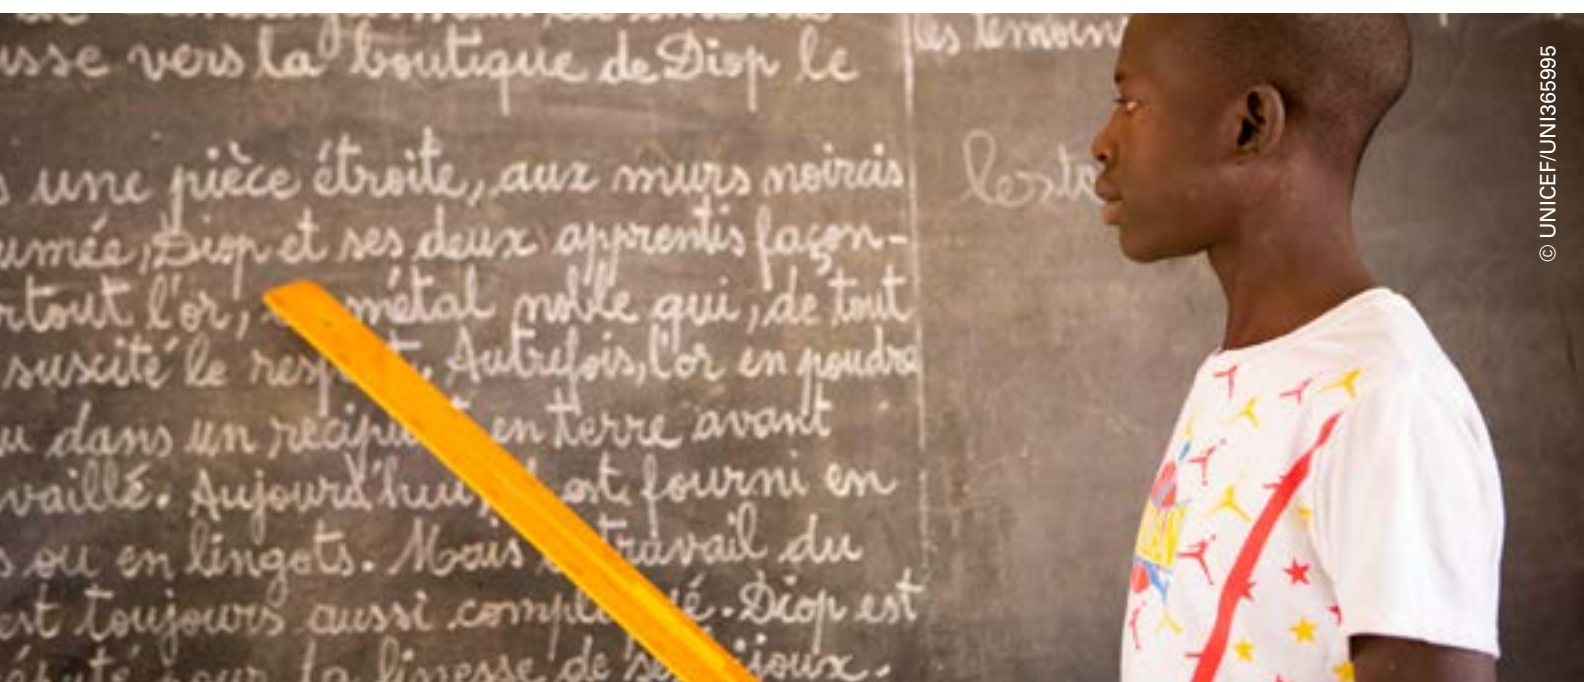 usse vers la boutique de Diop le
s une pièce étroite, aux murs noircis
umée, Diop et ses deux apprentis façon-
rtout l'or, métal noble qui, de tout
suscité le respect. Autrefois, l'or en poudre
u dans un récipient en terre avant
vaillé. Aujourd'hui, est fourni en
s ou en lingots. Mais travail du
est toujours aussi compliqué. Diop est
pour la finesse de ses bijoux.
les témoins
© UNICEF/UNI365995